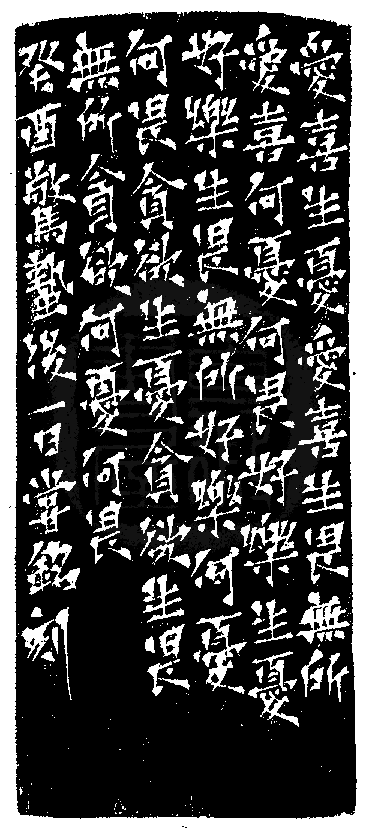 愛喜生憂愛喜生畏無所
愛喜何憂何畏好樂生憂
好樂生畏無所好樂何憂
何畏貪欲生憂貪欲生畏
無所貪欲何憂何畏
癸酉驚蟄後一日嘗銘刻